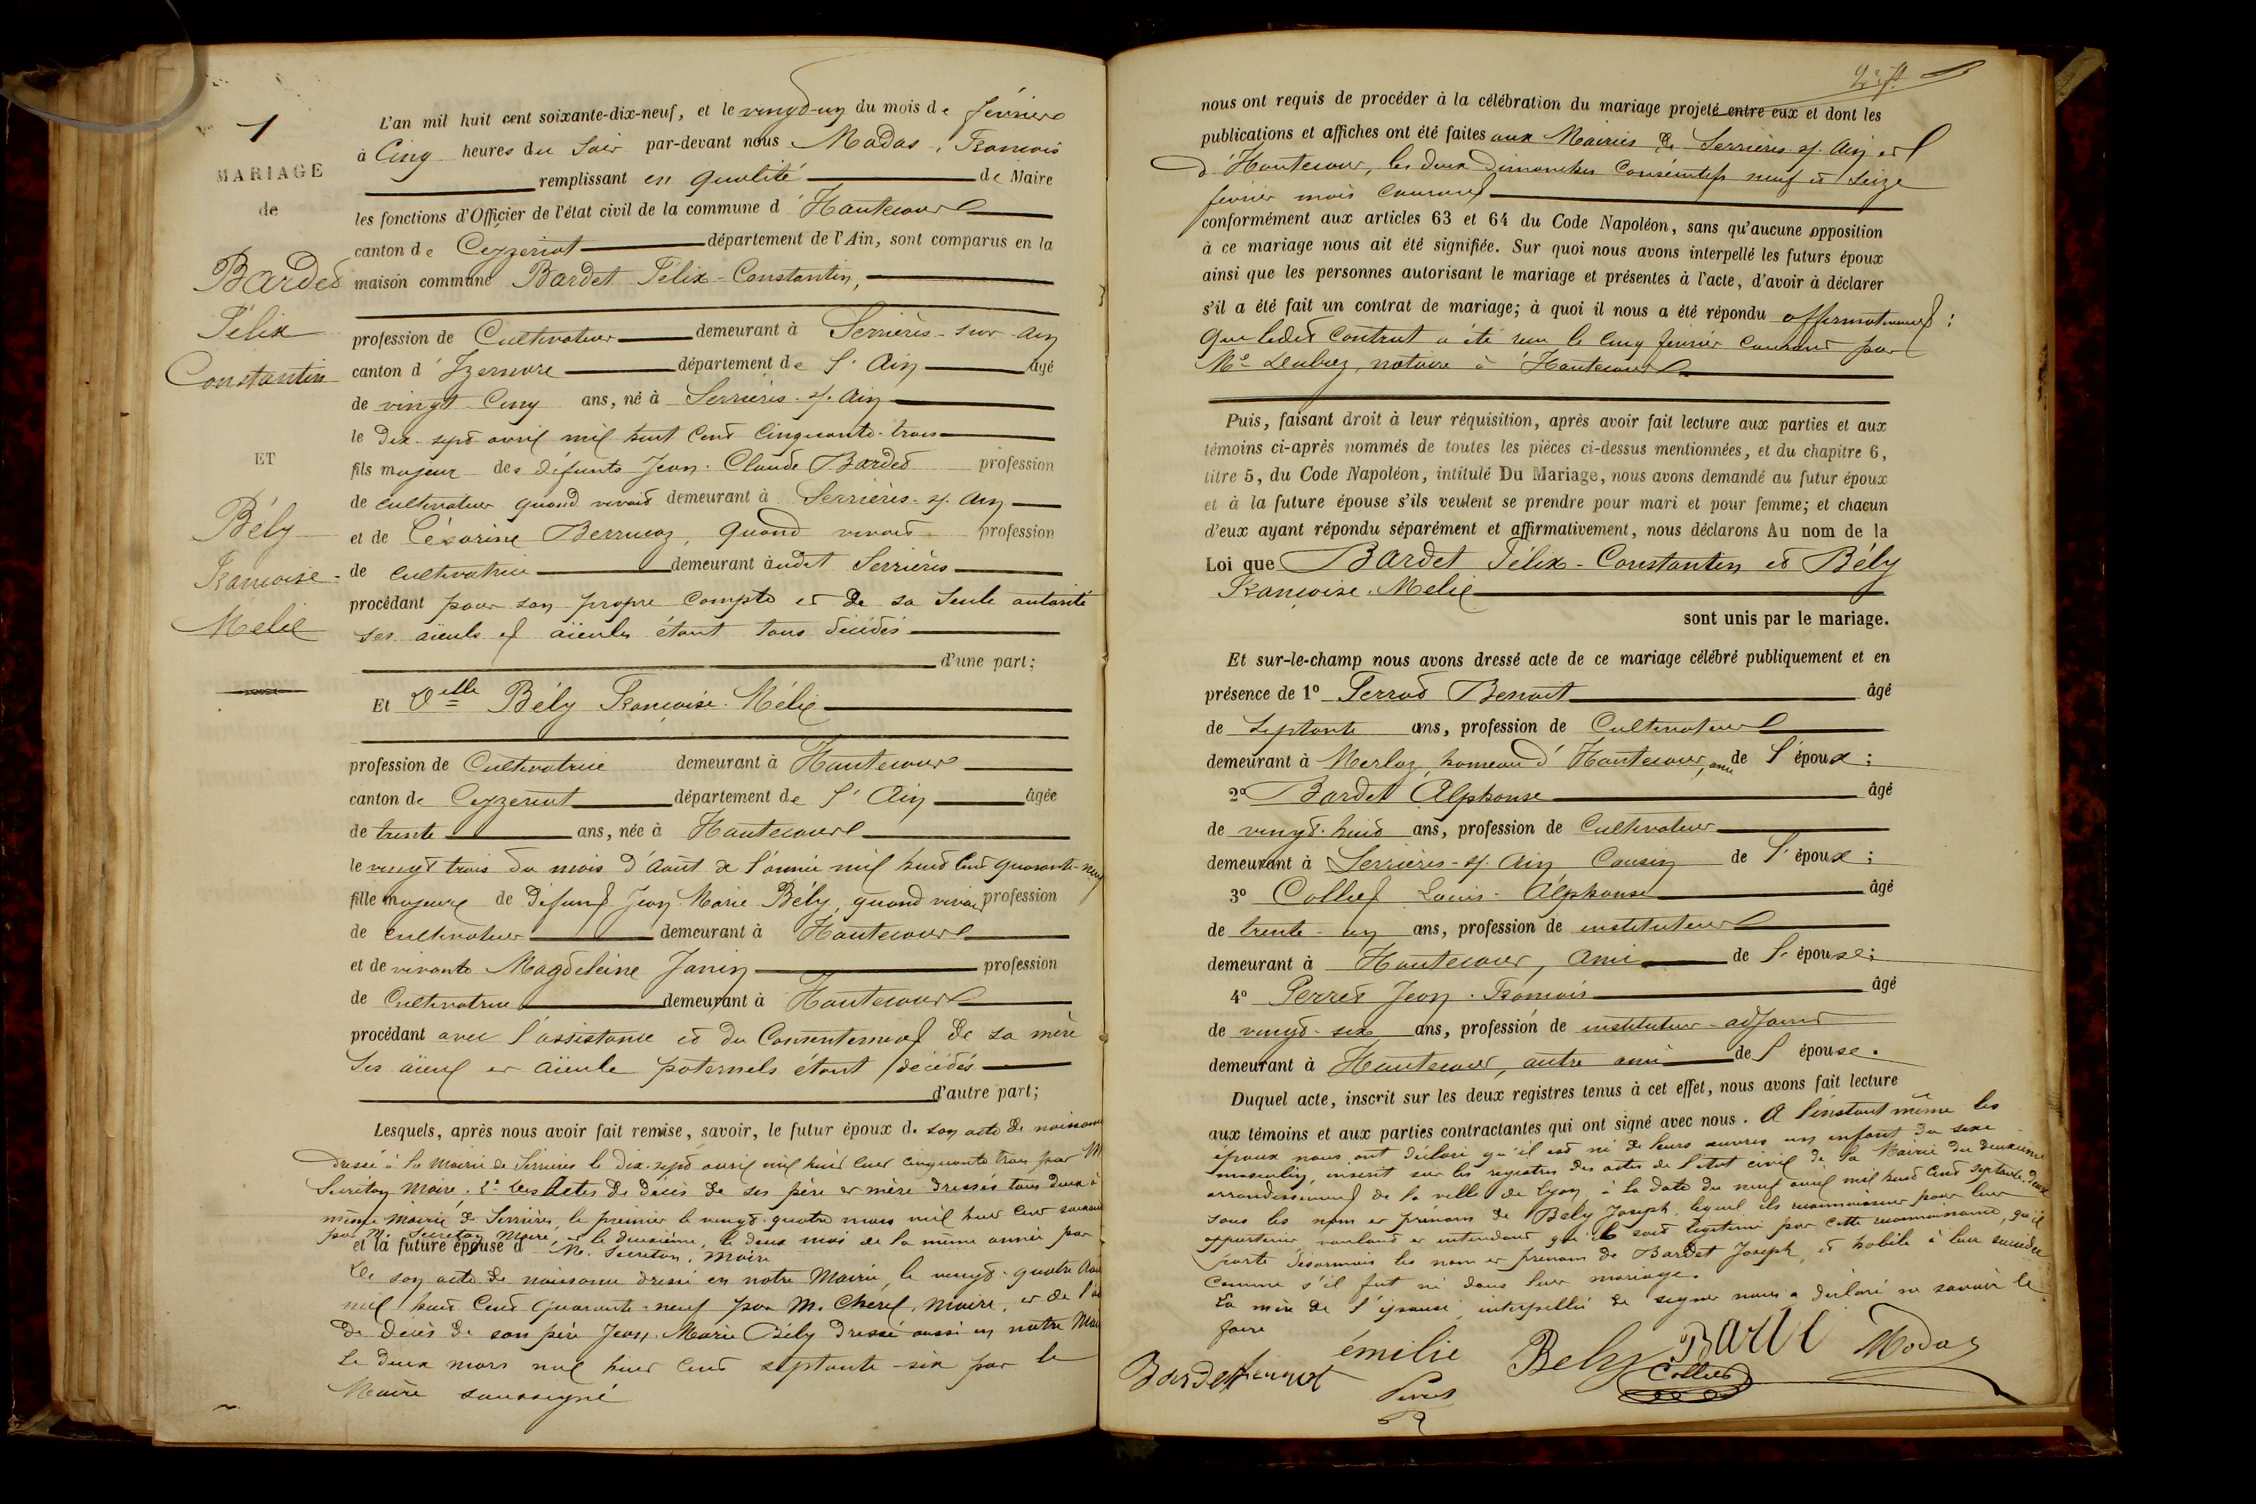 1
MARIAGE
de
Bardet
Félix
Constantin
ET
Bély
Françoise
Mélie
L'an mil huit cent soixante-dix-neuf, et le vingt-un du mois de février
à Cinq heures du Soir par-devant nous Modas, François
remplissant en qualité de Maire
les fonctions d'Officier de l'état civil de la commune d'Hautecour
canton de Ceyzeriat département de l'Ain, sont comparus en la
maison commune Bardet Félix-Constantin,
profession de Cultivateur demeurant à Serrières-sur-Ain
canton d'Izernore département de l'Ain âgé
de vingt-Cinq ans, né à Serrières-s/-Ain
le Dix-sept avril mil huit Cent Cinquante-trois
fils majeur des défunts Jean-Claude Bardet profession
de cultivateur quand vivait demeurant à Serrières-s/-Ain
et de Césarine Berrucoz, quand vivait profession
de cultivatrice demeurant audit Serrières
procédant pour son propre compte et de sa seule autorité
ses aïeuls et aïeules étant tous décédés
d'une part;
Et Delle Bély Françoise-Mélie
profession de Cultivatrice demeurant à Hautecour
canton de Ceyzeriat département de l'Ain âgée
de trente ans, née à Hautecour
le vingt trois du mois d'août de l'année mil huit Cent quarante-neuf
fille majeure de défunt Jean-Marie Bély, quand vivait profession
de cultivateur demeurant à Hautecour
et de vivante Magdeleine Janin profession
de Cultivatrice demeurant à Hautecour
procédant avec l'assistance et du Consentement de sa mère
Ses aïeul et aïeule paternels étant décédés
d'autre part;
Lesquels, après nous avoir fait remise, savoir, le futur époux de son acte de naissance
dressé à la Mairie de Serrières le dix-sept avril mil huit cent cinquante trois par M
Secretan Maire. 2° Les Actes de décès de ses père et mère dressés tous deux à
même Mairie de Serrières, le premier le vingt-quatre mars mil huit cent
par M. Secretan Maire, et le deuxième, le deux mai de la même année par
et la future épouse d M. Secretan, Maire
De son acte de naissance dressé en notre Mairie, le vingt-quatre Août
mil huit Cent Quarante-neuf par M. Chérel, Maire, et de l'a
de décès de son père Jean-Marie Bély dressé aussi en notre Mai
le deux mars mil huit cent septante-six par le
Maire soussigné
nous ont requis de procéder à la célébration du mariage projeté entre eux et dont les
publications et affiches ont été faites aux Mairies de Serrières s/ Ain et
d'Hautecour, les deux Dimanches Consécutifs neuf et Seize
février mois courant
conformément aux articles 63 et 64 du Code Napoléon, sans qu'aucune opposition
à ce mariage nous ait été signifiée. Sur quoi nous avons interpellé les futurs époux
ainsi que les personnes autorisant le mariage et présentes à l'acte, d'avoir à déclarer
s'il a été fait un contrat de mariage; à quoi il nous a été répondu affirmativement:
Que ledit Contrat a été reçu le cinq février courant par
Me notaire à Hautecour
Puis, faisant droit à leur réquisition, après avoir fait lecture aux parties et aux
témoins ci-après nommés de toutes les pièces ci-dessus mentionnées, et du chapitre 6,
titre 5, du Code Napoléon, intitulé Du Mariage, nous avons demandé au futur époux
et à la future épouse s'ils veulent se prendre pour mari et pour femme; et chacun
d'eux ayant répondu séparément et affirmativement, nous déclarons Au nom de la
Loi que Bardet Félix-Constantin et Bély
Françoise-Mélie
sont unis par le mariage.
Et sur-le-champ nous avons dressé acte de ce mariage célébré publiquement et en
présence de 1° Perrod Benoit âgé
de septante ans, profession de Cultivateur
demeurant à Merloz, hameau d'Hautecour, ami de l'époux;
2° Bardet Alphonse âgé
de vingt-huit ans, profession de Cultivateur
demeurant à Serrières-s/-Ain Cousin de l'époux;
3° Collet Louis-Alphonse âgé
de trente-un ans, profession de instituteur
demeurant à Hautecour, Ami de l'épouse;
4° Perret Jean-François âgé
de vingt-six ans, profession de instituteur-adjoint
demeurant à Hautecour, autre ami de l'épouse.
Duquel acte, inscrit sur les deux registres tenus à cet effet, nous avons fait lecture
aux témoins et aux parties contractantes qui ont signé avec nous. A l'instant même les
époux nous ont déclaré qu'il est né de leurs œuvres un enfant du sexe
masculin, inscrit sur les registres des actes de l'état civil de la Mairie du deuxième
arrondissement de la ville de Lyon, à la date du neuf avril mil huit Cent septante-deux
sous les nom et prénom de Bély Joseph, lequel ils reconnaissent pour leur
appartenir voulant et entendant qu'il soit légitimé par cette reconnaissance, qu'il
porte désormais les nom et prénom de Bardet Joseph, et habile à leur succéder
comme s'il fut né dans leur mariage.
La mère de l'épouse, interpellée de signer nous a déclaré ne savoir le
faire
émilie Bely Bardet Modas
Bardet Perret Collet